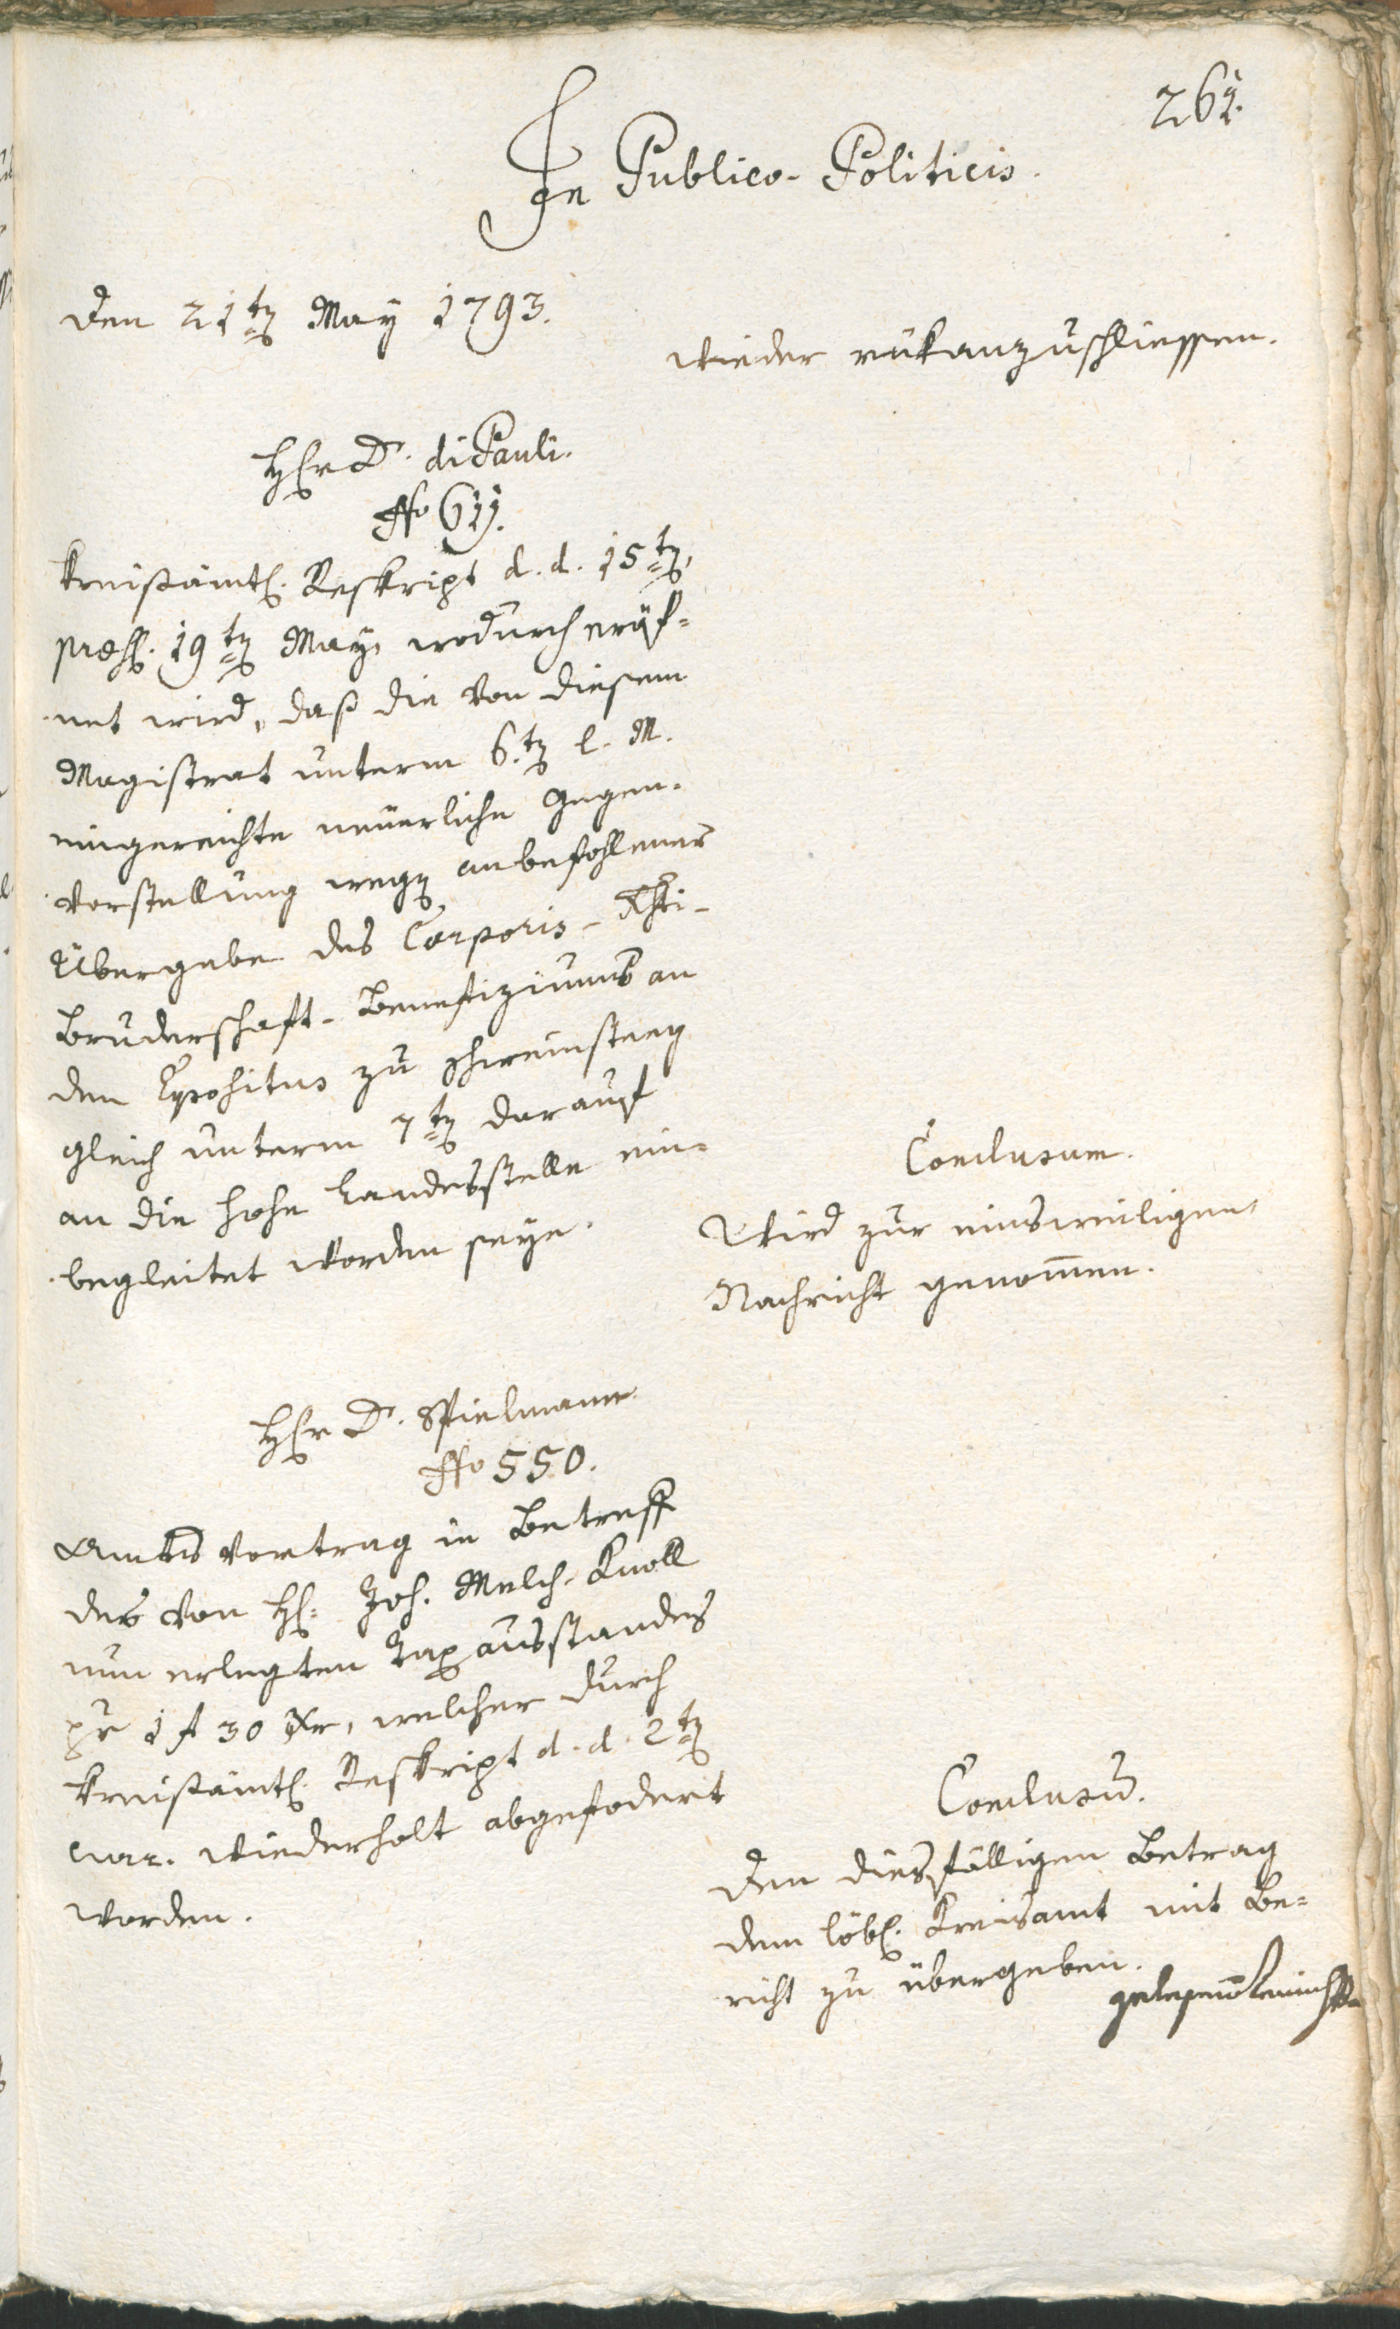 261.
In Publico-Politicis.
Den 21ten May 1793.
wieder rükanzuschliessen.
Herr Dr. di Pauli.
No 611.
Kreisämtl. Reskript d. d. 15ten,
præs. 19ten May, wodurch eröf=
net wird, daß die von diesem
Magistrat unterm 6.ten l. M.
eingereichte neuerliche Gegen-
vorstellung wegen anbefohlener
Übergabe des Corporis-Xsti-
Bruderschaft-Benefiziums an
den Expositus zu
gleich unterm 7ten darauf
an die hohe Landesstelle ein-
begleitet worden seye.
Conclusum.
Wird zur einsweiligen
Nachricht genom̄en.
Herr Dr. Spielmann.
No 550.
Amtsvortrag in Betreff
des von H. Joh. Melch. Knoll
nun erlegten Taxausstandes
pr 1 f 30 Xr, welcher durch
Kreisämtl. Reskript d. d. 2ten
curr. wiederholt abgefodert
worden.
Conclusū.
Den diesfälligen Betrag
dem löbl. Kreisamt mit Be=
richt zu übergeben.